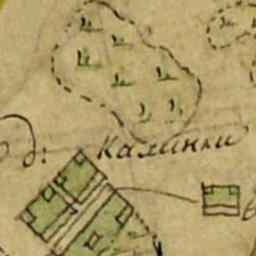 д: Калинки